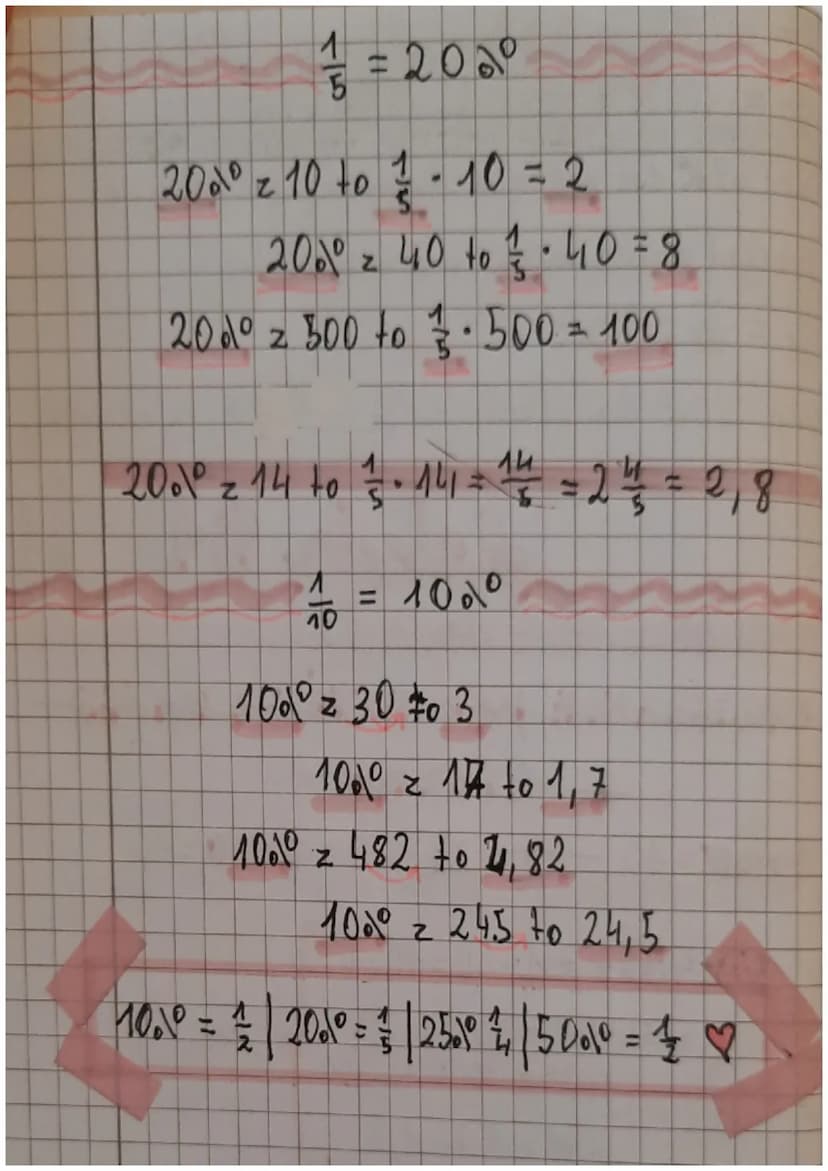 1/5 = 20%
20% z 10 to 1/5 · 10 = 2
20% z 40 to 1/5 · 40 = 8
20% z 500 to 1/5 · 500 = 100
20% z 14 to 1/5 · 14 = 14/5 = 2 4/5 = 2,8
1/10 = 10%
10% z 30 to 3
10% z 17 to 1,7
10% z 482 to 4,82
10% z 245 to 24,5
10% = 1/2 | 20% = 1/5 | 25% 1/4 | 50% = 1/2 ♥